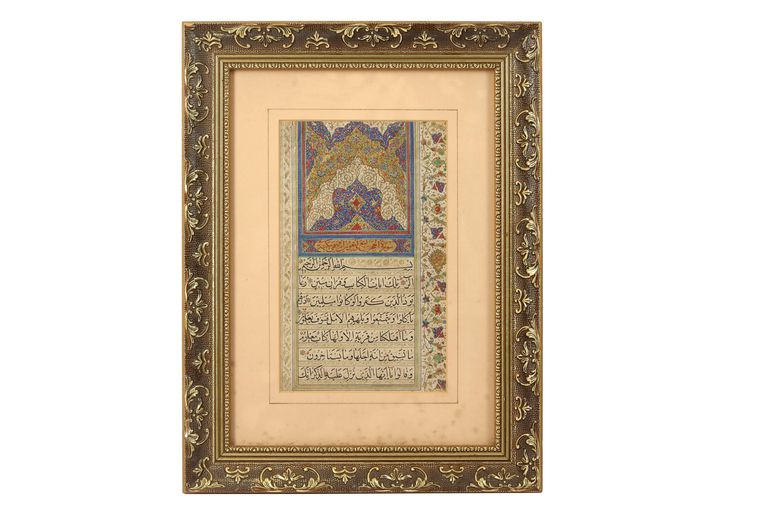 سورة الحجر تسع وتسعون
بسم الله الرحمن الرحيم
الر تلك ايات الكتاب وقران مبين ربما
يود الذين كفروا لو كانوا مسلمين ذرهم
ياكلوا ويتمتعوا ويلههم الامل فسوف يعلمون
وما اهلكنا من قرية الا ولها كتاب معلوم
ما تسبق من امة اجلها وما يستاخرون
وقالوا يا ايها الذي نزل عليه الذكر انك